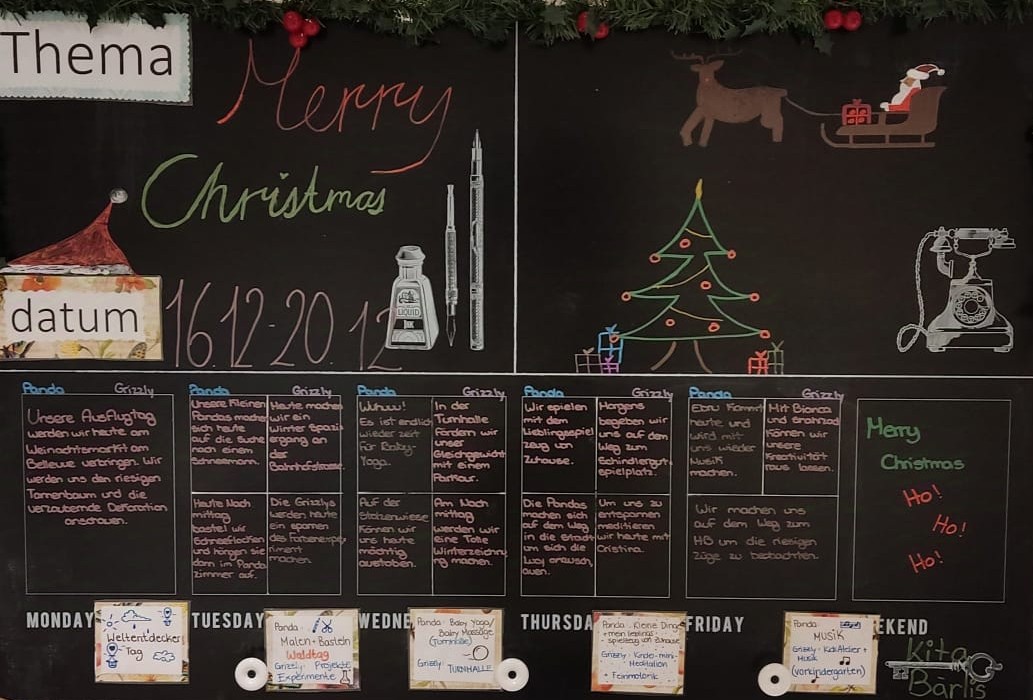 Thema
Merry
Christmas
datum
16.12-20.12
LIQUID
INK
Panda Grizzly
Unsere Ausflugtag
werden wir heute am
Weinachtsmarkt am
Bellevue verbringen. Wir
werden uns den riesigen
Tannenbaum und die
verzaubernde Dekoration
anschauen.
Panda Grizzly
Unsere Kleinen
Pandas machen
sich heute
auf die suche
nach einem
Schneemann.
Heute machen
wir ein
Winter Spazi-
ergang an
der
Bahnhofstrasse.
Heute Nach
mittag
bastel wir
Schneeflocken
und hängen sie
dann im Panda
zimmer auf.
Die Grizzlys
werden heute
ein
riment
machen.
Panda Grizzly
Wuhuu!
Es ist endlich
wieder zeit
für Baby-
Yoga.
In der
Turnhalle
fördern wir
unser
Gleichgewicht
mit einem
Parkour.
Auf der
Stolzewiese
können wir
uns heute
mächtig
austoben.
Am Nach
mittag
werden wir
eine Tolle
Winterzeichnu
ng machen.
Panda Grizzly
Wir spielen
mit dem
Lieblingsspiel
zeug von
Zuhause.
Morgens
begeben wir
uns auf dem
Weg zum
Schindlergut-
spielplatz.
Die Pandas
machen sich
auf dem Weg
in die Stadt
um sich die
anzusch
auen.
Um uns zu
entspannen
meditieren
wir heute mit
Cristina.
Panda Grizzly
Ebru kommt
heute und
wird mit
uns wieder
Musik
machen.
Mit Bianca
und
können wir
unsere
Kreativität
raus lassen.
Wir machen uns
auf dem Weg zum
HB um die riesigen
züge zu beobachten.
Merry
Christmas
Ho!
Ho!
Ho!
MONDAY
TUESDAY
WEDNE
THURSDA
FRIDAY
EKEND
Weltentdecker
Tag
Panda:
Malen + Basteln
Waldtag
Grizzly: Projekte
Experimente
Panda: Baby Yoga/
Baby Massage
(Turnhalle)
Grizzly: TURNHALLE
Panda: Kleine Ding
+ mein lieblings-
spielzeug von zuhause
Grizzly: Kinder-mini-
Meditation
+ Feinmotorik
Panda:
MUSIK
Grizzly: KidsAtelier +
Musik
(Vorkindergarten)
Kita
Bärlis